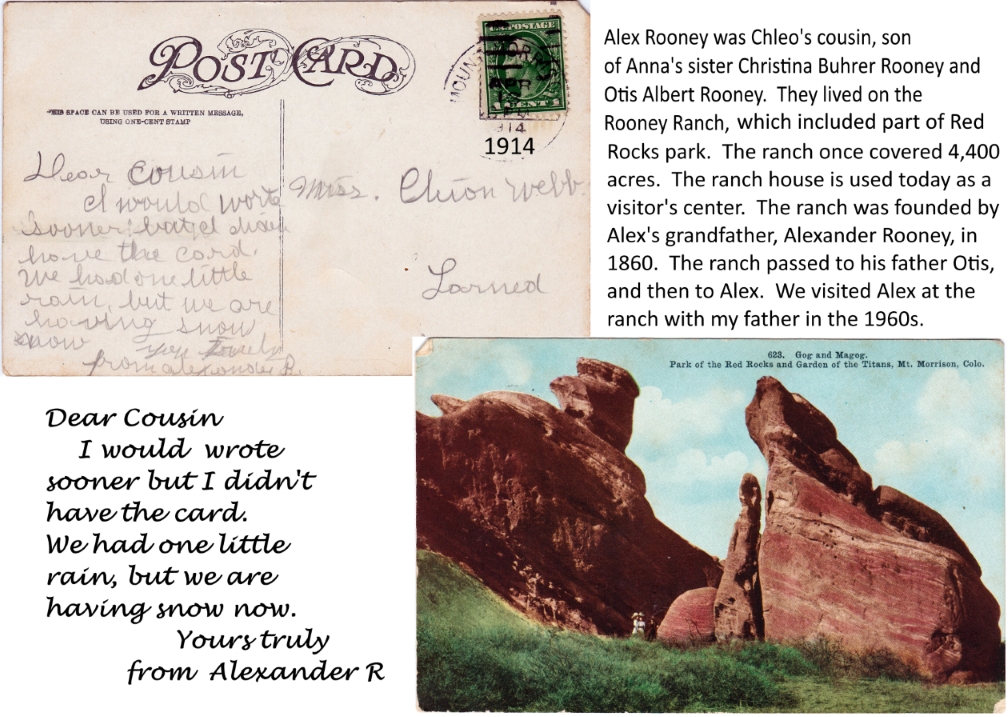 POST CARD
THIS SPACE CAN BE USED FOR A WRITTEN MESSAGE,
USING ONE-CENT STAMP
U.S. POSTAGE
1 CENT 1
MOUNT
914
1914
Dear cousin
I would wrote
sooner but I didn
have the card.
We had one little
rain, but we are
having snow
now
from alexander R.
Miss. Chion Webb
Larned
Alex Rooney was Chleo's cousin, son
of Anna's sister Christina Buhrer Rooney and
Otis Albert Rooney. They lived on the
Rooney Ranch, which included part of Red
Rocks park. The ranch once covered 4,400
acres. The ranch house is used today as a
visitor's center. The ranch was founded by
Alex's grandfather, Alexander Rooney, in
1860. The ranch passed to his father Otis,
and then to Alex. We visited Alex at the
ranch with my father in the 1960s.
623. Gog and Magog.
Park of the Red Rocks and Garden of the Titans, Mt. Morrison, Colo.
Dear Cousin
I would wrote
sooner but I didn't
have the card.
We had one little
rain, but we are
having snow now.
Yours truly
from Alexander R